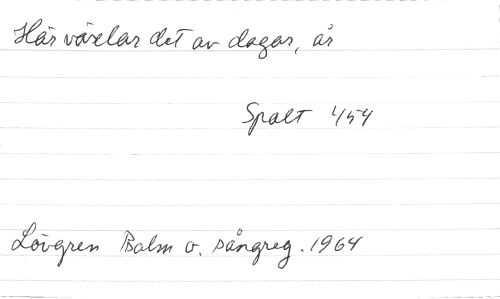 Här växlar det av dagar, år
Spalt 454
Lövgren Psalm o. sångreg. 1964